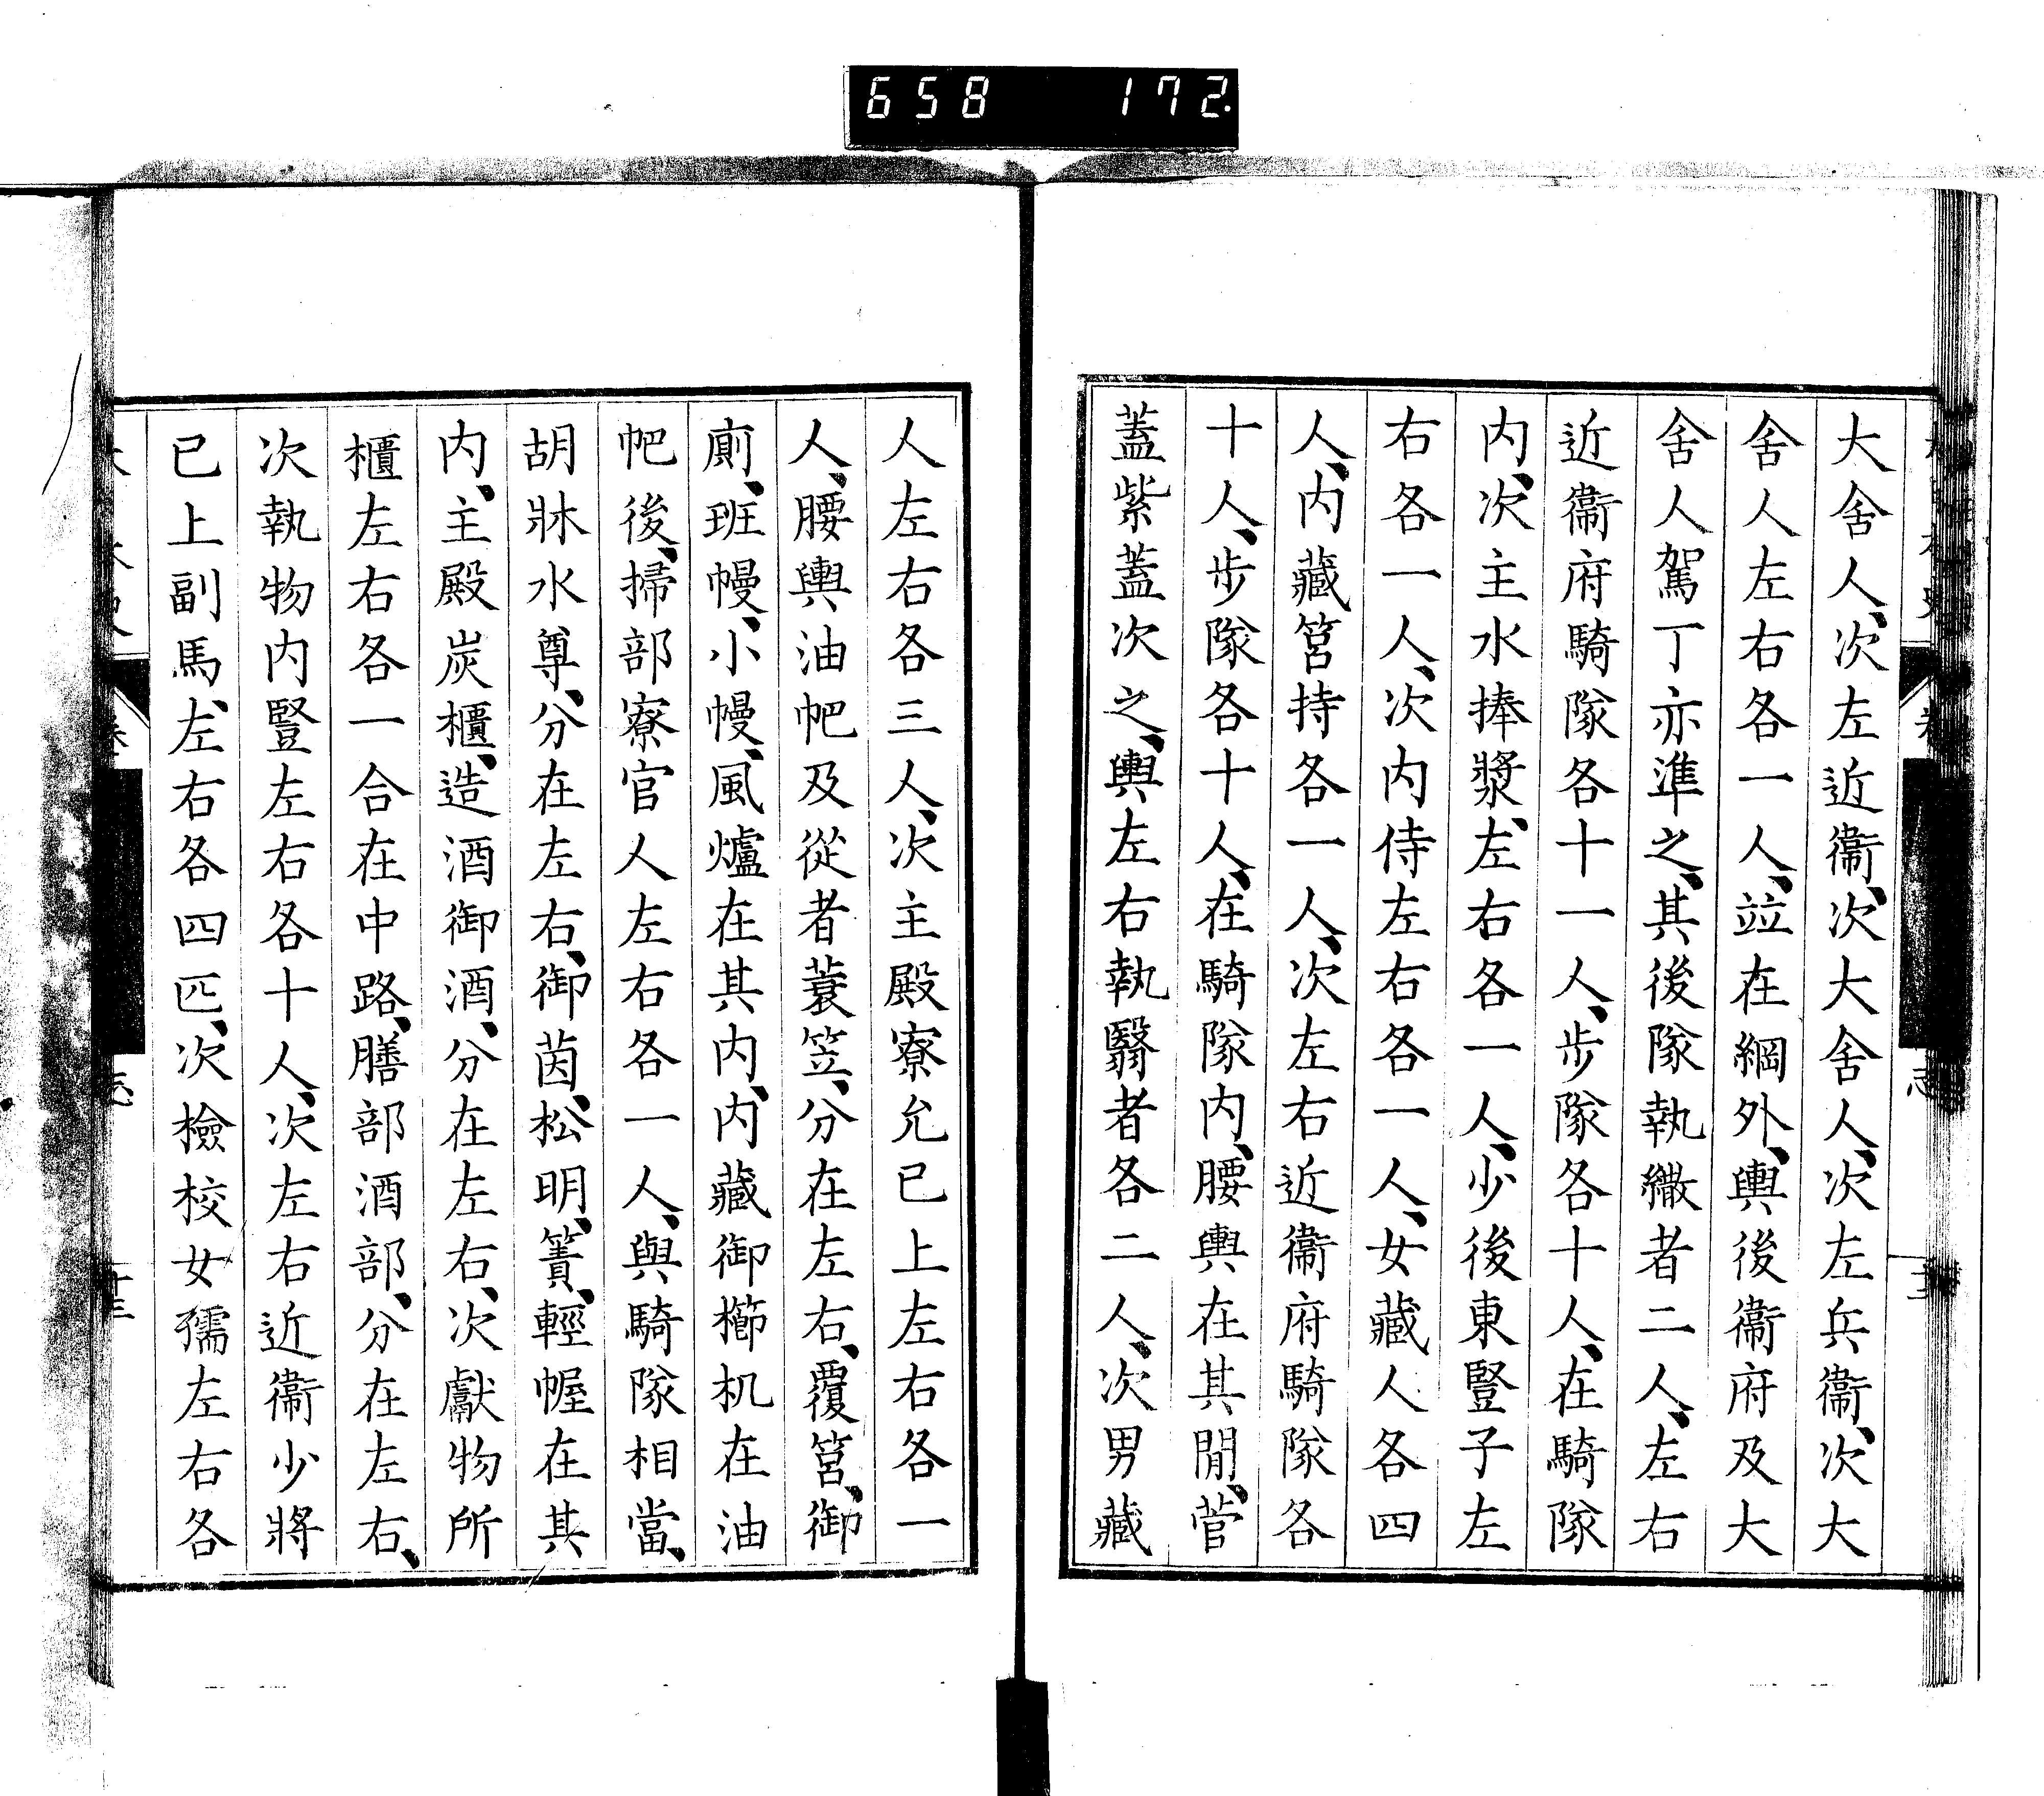 658 172
大舍人、次左近衞、次大舍人、次左兵衞、次大
舍人左右各一人、竝在綱外、輿後衞府及大
舍人駕丁亦準之、其後隊執繖者二人、左右
近衞府騎隊各十一人、步隊各十人、在騎隊
内、次主水捧漿、左右各一人、少後東豎子左
右各一人、次内侍左右各一人、女藏人各四
人、内藏筥持各一人、次左右近衞府騎隊各
十人、步隊各十人、在騎隊内、腰輿在其閒、菅
蓋紫蓋次之、輿左右執翳者各二人、次男藏
人左右各三人、次主殿寮允已上左右各一
人、腰輿油帊及從者蓑笠、分在左右、覆筥、御
廁、班幔、小幔、風爐在其内、内藏御櫛机在油
帊後、掃部寮官人左右各一人、與騎隊相當、
胡牀水尊、分在左右、御茵、松明、簀、輕幄在其
内、主殿炭櫃、造酒御酒、分在左右、次獻物所
櫃左右各一合在中路、膳部酒部、分在左右、
次執物内豎左右各十人、次左右近衞少將
已上副馬、左右各四匹、次檢校女孺左右各
志
十三